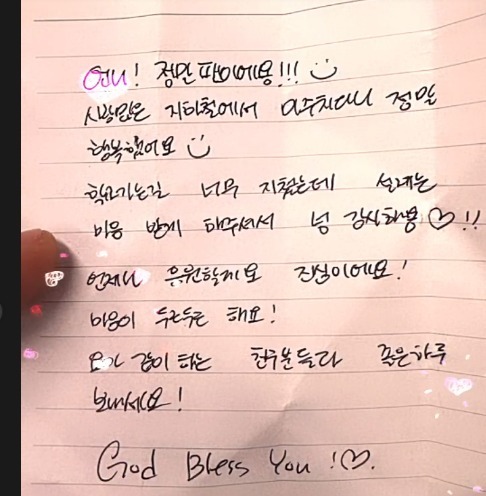 언니! 정말 팬이에용!!!
사람많은 지하철에서 마주치다니 정말
행복했어요
학교가는길 너무 지쳤는데 설레는
마음 받게 해주셔서 넘 감사해용♡!!
언제나 응원할게요 진심이에요!
마음이 두근두근 해요!
같이 하는 친구분들과 좋은하루
보내세요!
God Bless You !♡.